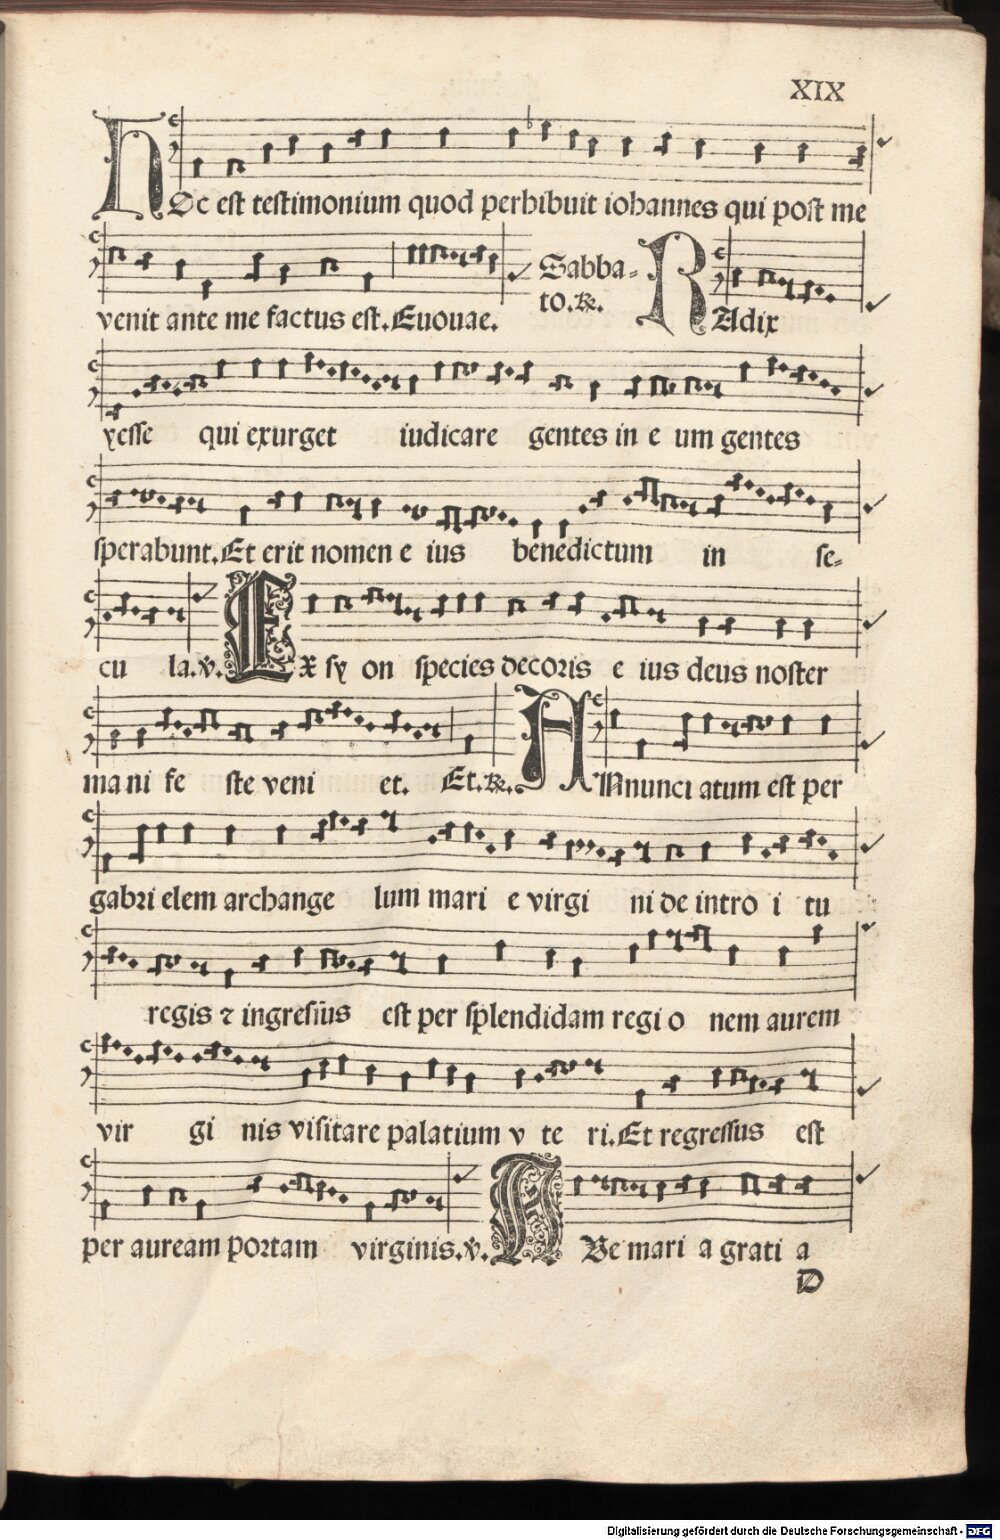 XIX
HOc est testimonium quod perhibuit iohannes qui post me
venit ante me factus est. Euouae. Sabba-
to. ℟. RAdix
yesse qui exurget iudicare gentes in e um gentes
sperabunt. Et erit nomen e ius benedictum in se-
cu la. ℣. EX sy on species decoris e ius deus noster
ma ni fe ste veni et. Et. ℟. ANnunci atum est per
gabri elem archange lum mari e virgi ni de intro i tu
regis ⁊ ingressus est per splendidam regi o nem aurem
vir gi nis visitare palatium v te ri. Et regressus est
per auream portam virginis. ℣. AVe mari a grati a
D
Digitalisierung gefördert durch die Deutsche Forschungsgemeinschaft - DFG